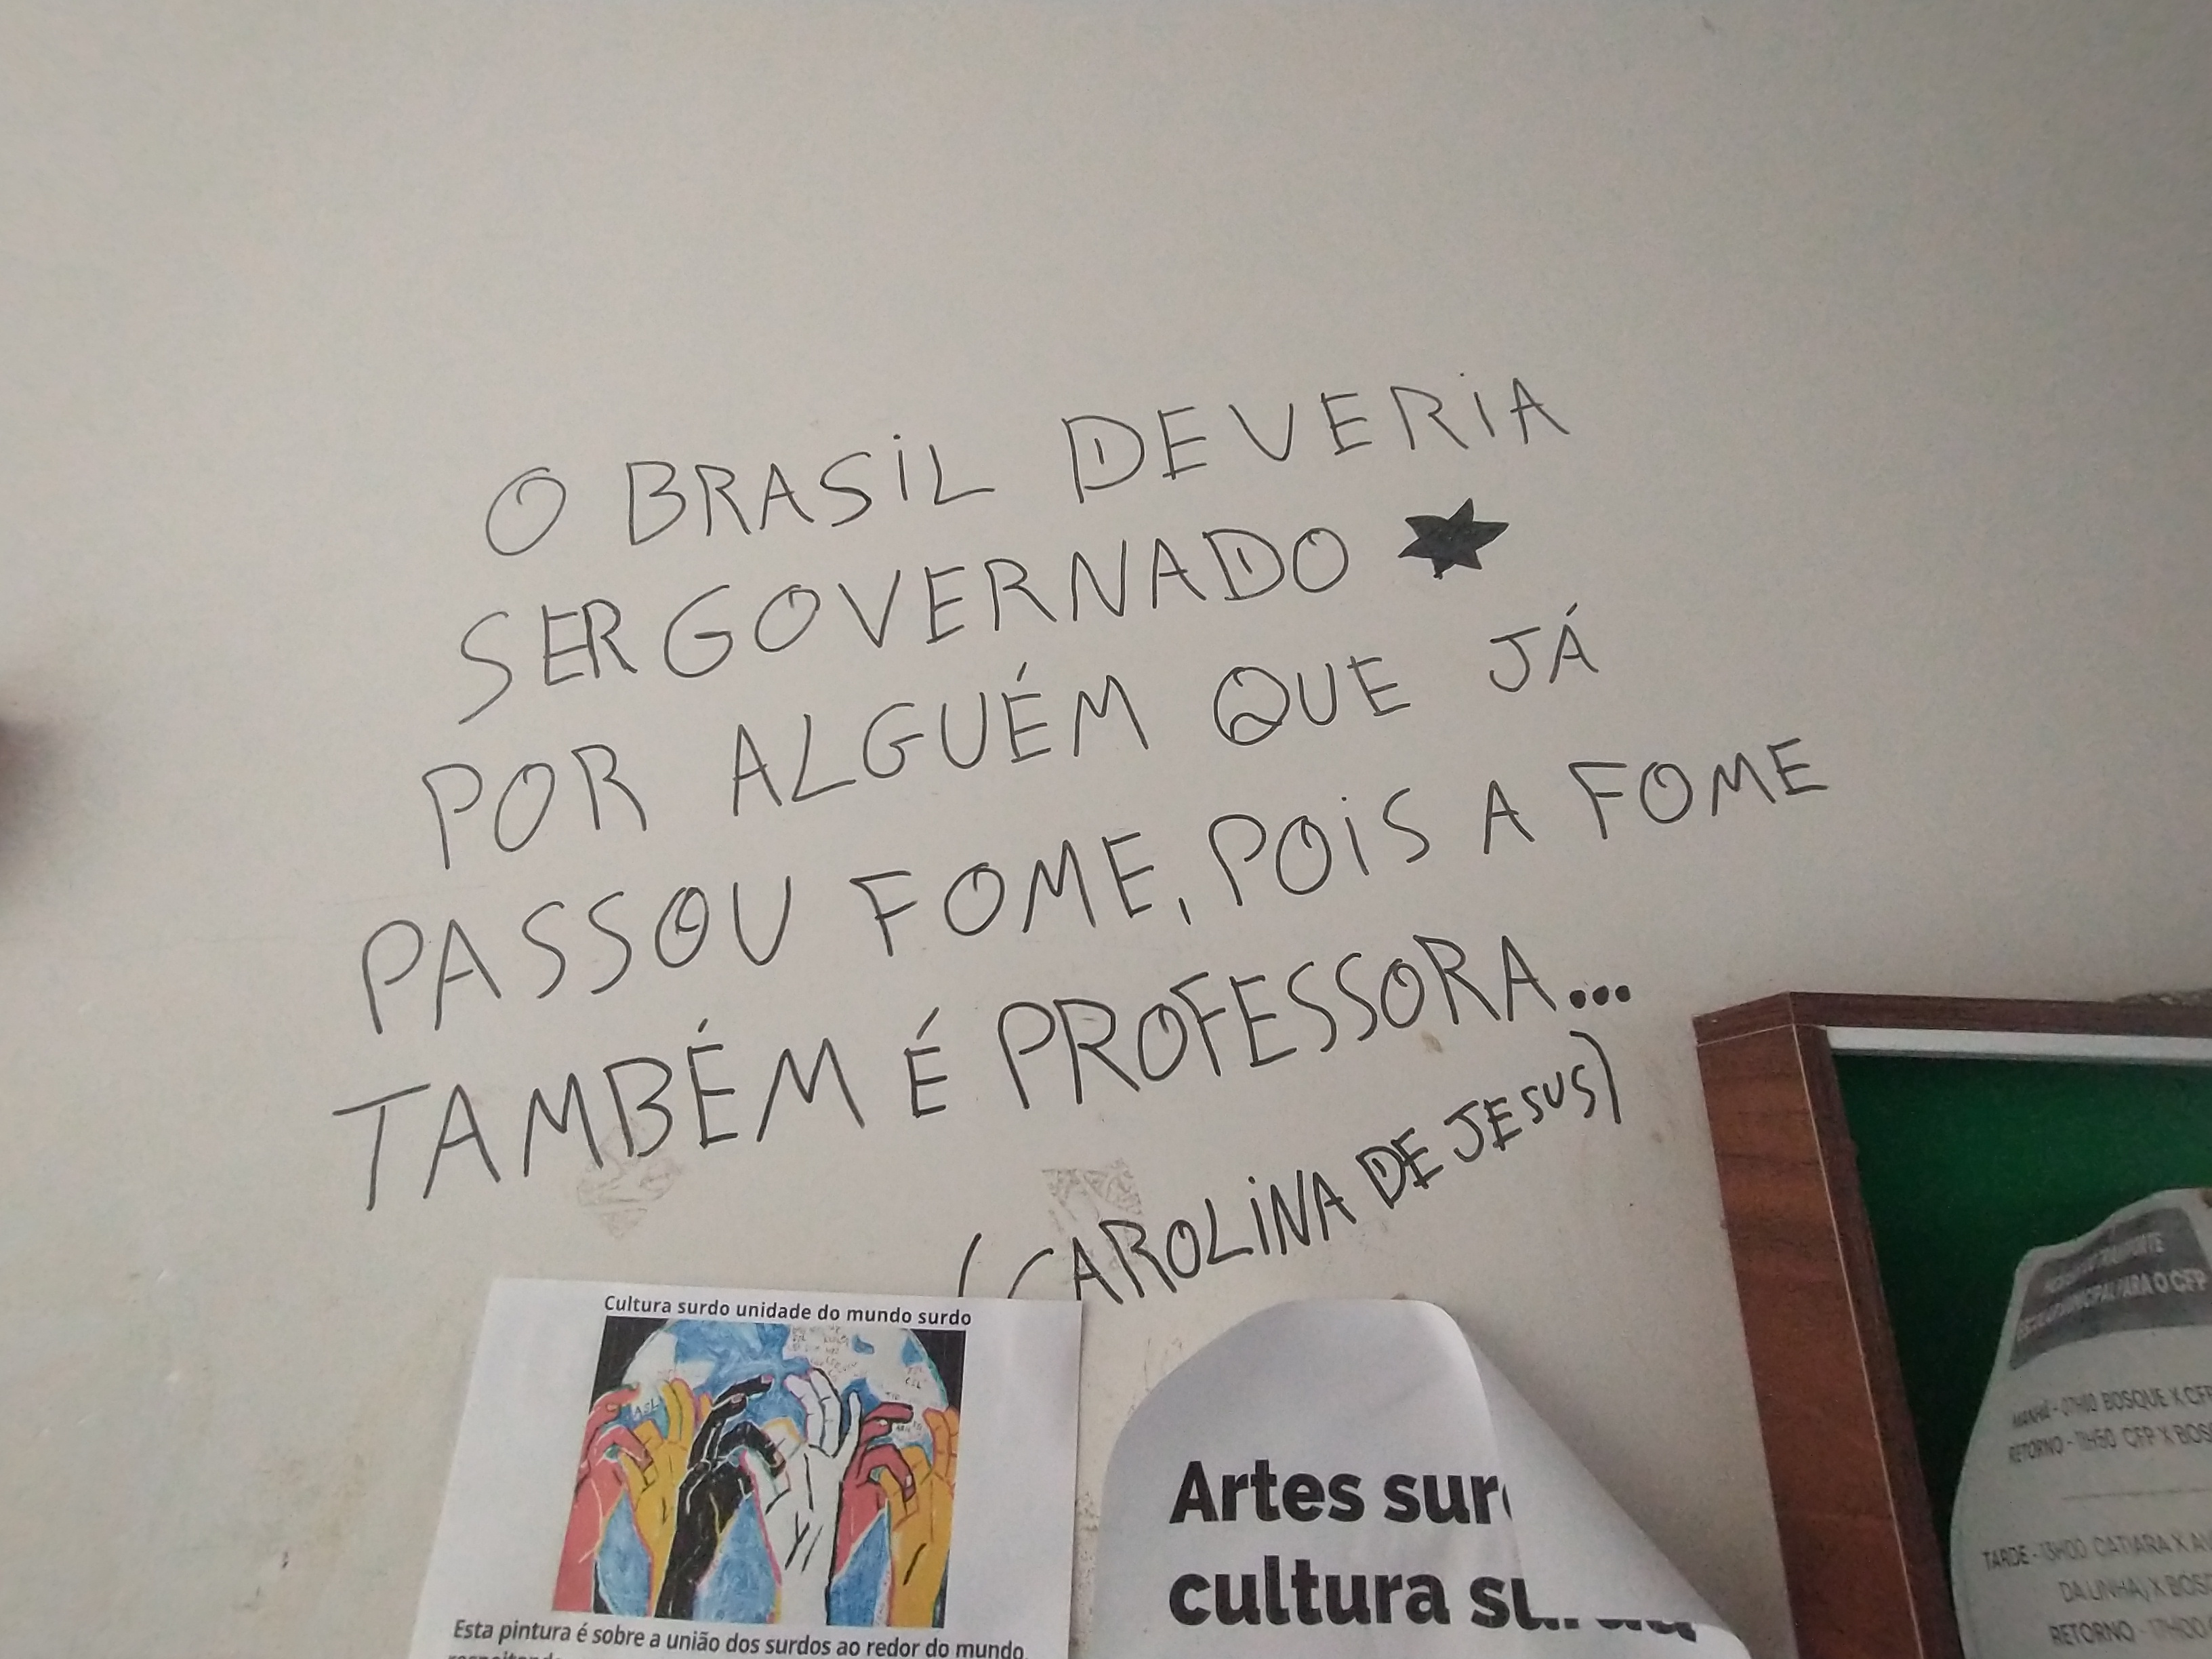 O BRASIL DEVERIA
SER GOVERNADO
POR ALGUÉM QUE JÁ
PASSOU FOME, POIS A FOME
TAMBÉM É PROFESSORA...
(CAROLINA DE JESUS)
Cultura surdo unidade do mundo surdo
ASL
Esta pintura é sobre a união dos surdos ao redor do mundo,
Artes
cultura
PARA O CFP
MANHÃ - 07H00 BOSQUE X CFP
RETORNO - 11H50 CFP X
TARDE - 13H00 CATIARA X
DA LINHA) X
RETORNO - 17H00